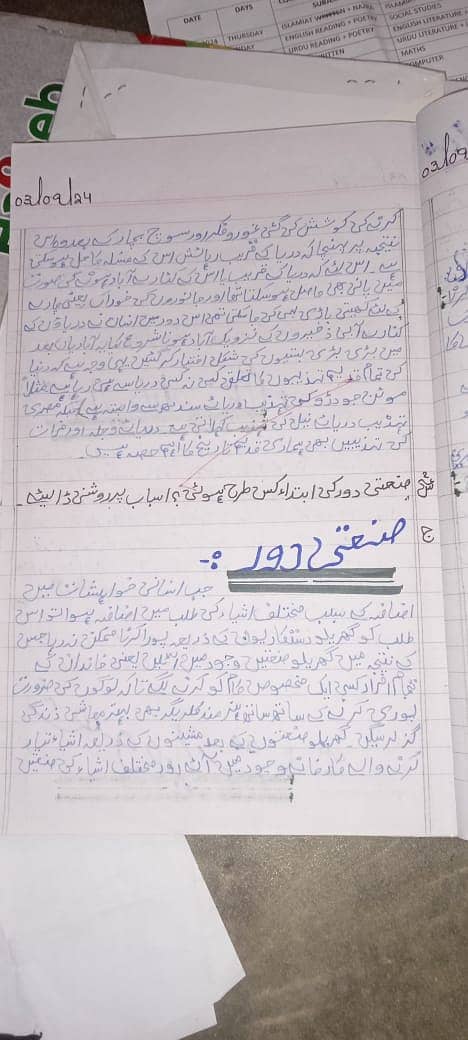 DATE DAYS
2024 THURSDAY ISLAMIAT WRITTEN + NAZRA SOCIAL STUDIES
ENGLISH READING + POETRY ISLAMIAT
URDU READING + POETRY ENGLISH LITERATURE
WRITTEN URDU LITERATURE
MATHS
COMPUTER
03/09/24
کرنے کی کوشش کی گئی غور و فکر اور سوچ بچار کے بعد وہ اس
نتیجہ پر پہنچا کہ دریا کے قریب رہائش اس کے مسئلہ کا حل ہو سکتی
ہے۔ اس لئے کہ دریا کے قریب یا اس کے کنارے آباد ہونے کی صورت
میں پانی بھی حاصل ہو سکتا تھا اور جانوروں کی خوراک یعنی چارے
کے لئے کھیتی باڑی بھی کی جا سکتی تھی اس دور میں انسان نے دریاؤں کے
کنارے آبی ذخیروں کے نزدیک آباد ہونا شروع کیا۔ آبادیاں بعد
میں بڑی بڑی بستیوں کی شکل اختیار کر گئیں یہی وجہ ہے کہ دنیا
کی تمام قدیم تہذیبوں کا تعلق کسی نہ کسی دریا سے ہی رہا ہے مثلاً
موئن جودڑو کی تہذیب دریائے سندھ سے وابستہ ہے جبکہ مصری
تہذیب دریائے نیل کی تہذیب کہلاتی ہے۔ دریائے دجلہ اور فرات
کی تہذیبیں بھی ہماری قدیم تاریخ کا اہم حصہ ہیں۔
صنعتی دور کی ابتداء کس طرح ہوئی؟ اسباب پر روشنی ڈالیئے۔
ج صنعتی دور :-
جب انسانی خواہشات میں
اضافہ کے سبب مختلف اشیاء کی طلب میں اضافہ ہوا تو اس
طلب کو گھریلو دستکاریوں کے ذریعہ پورا کرنا ممکن نہ رہا جس
کے نتیجہ میں گھریلو صنعتیں وجود میں آئیں یعنی خاندان کے
تمام افراد کسی ایک مخصوص کام کو کرنے لگے تاکہ لوگوں کی ضرورت
پوری کرنے کے ساتھ ساتھ ہنر مند کاریگر بھی بہتر معاشی زندگی
گذار سکیں گھریلو صنعتوں کے بعد مشینوں کے ذریعہ اشیاء تیار
کرنے والے کارخانے وجود میں آئے اور مختلف اشیاء کی صنعتیں
03/09